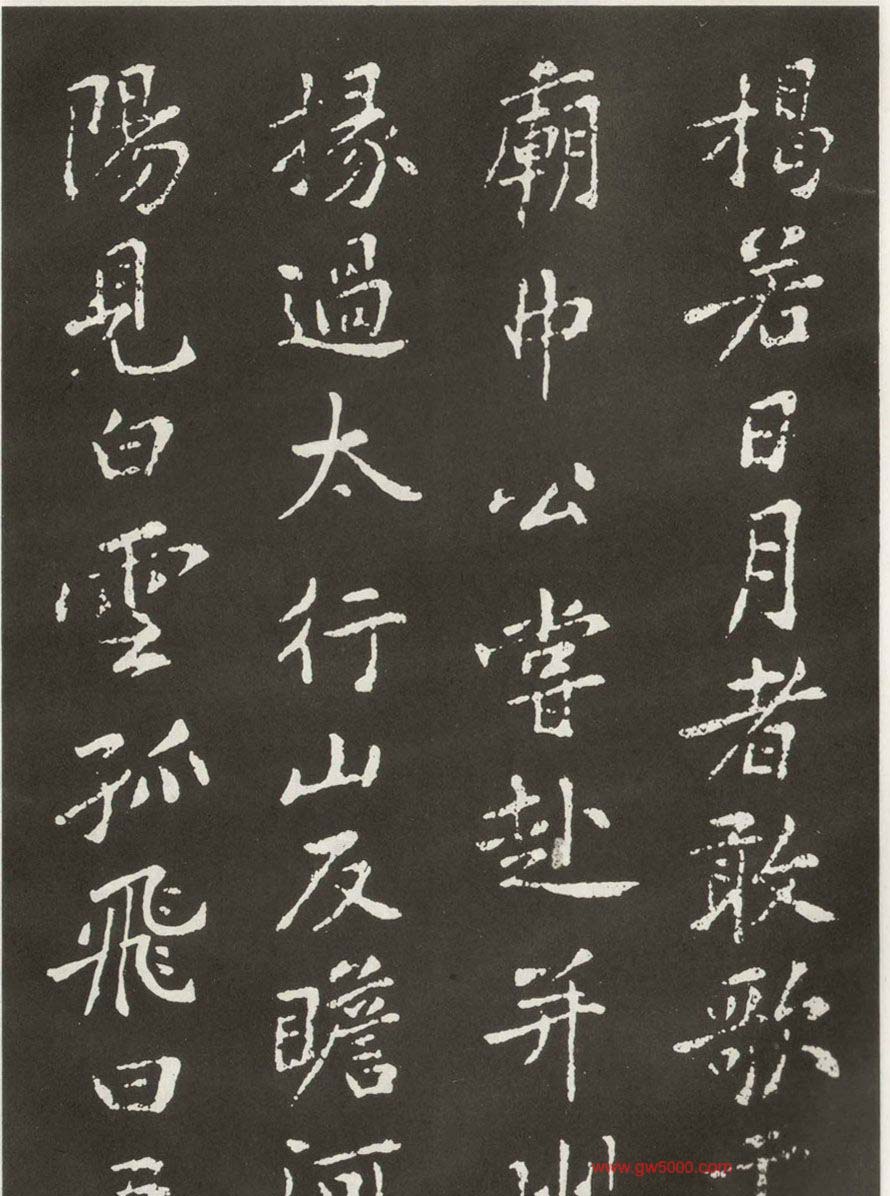 揭若日月者敢歌
廟中公嘗赴并州
掾過太行山反瞻河
陽見白雲孤飛曰
www.gw5000.com